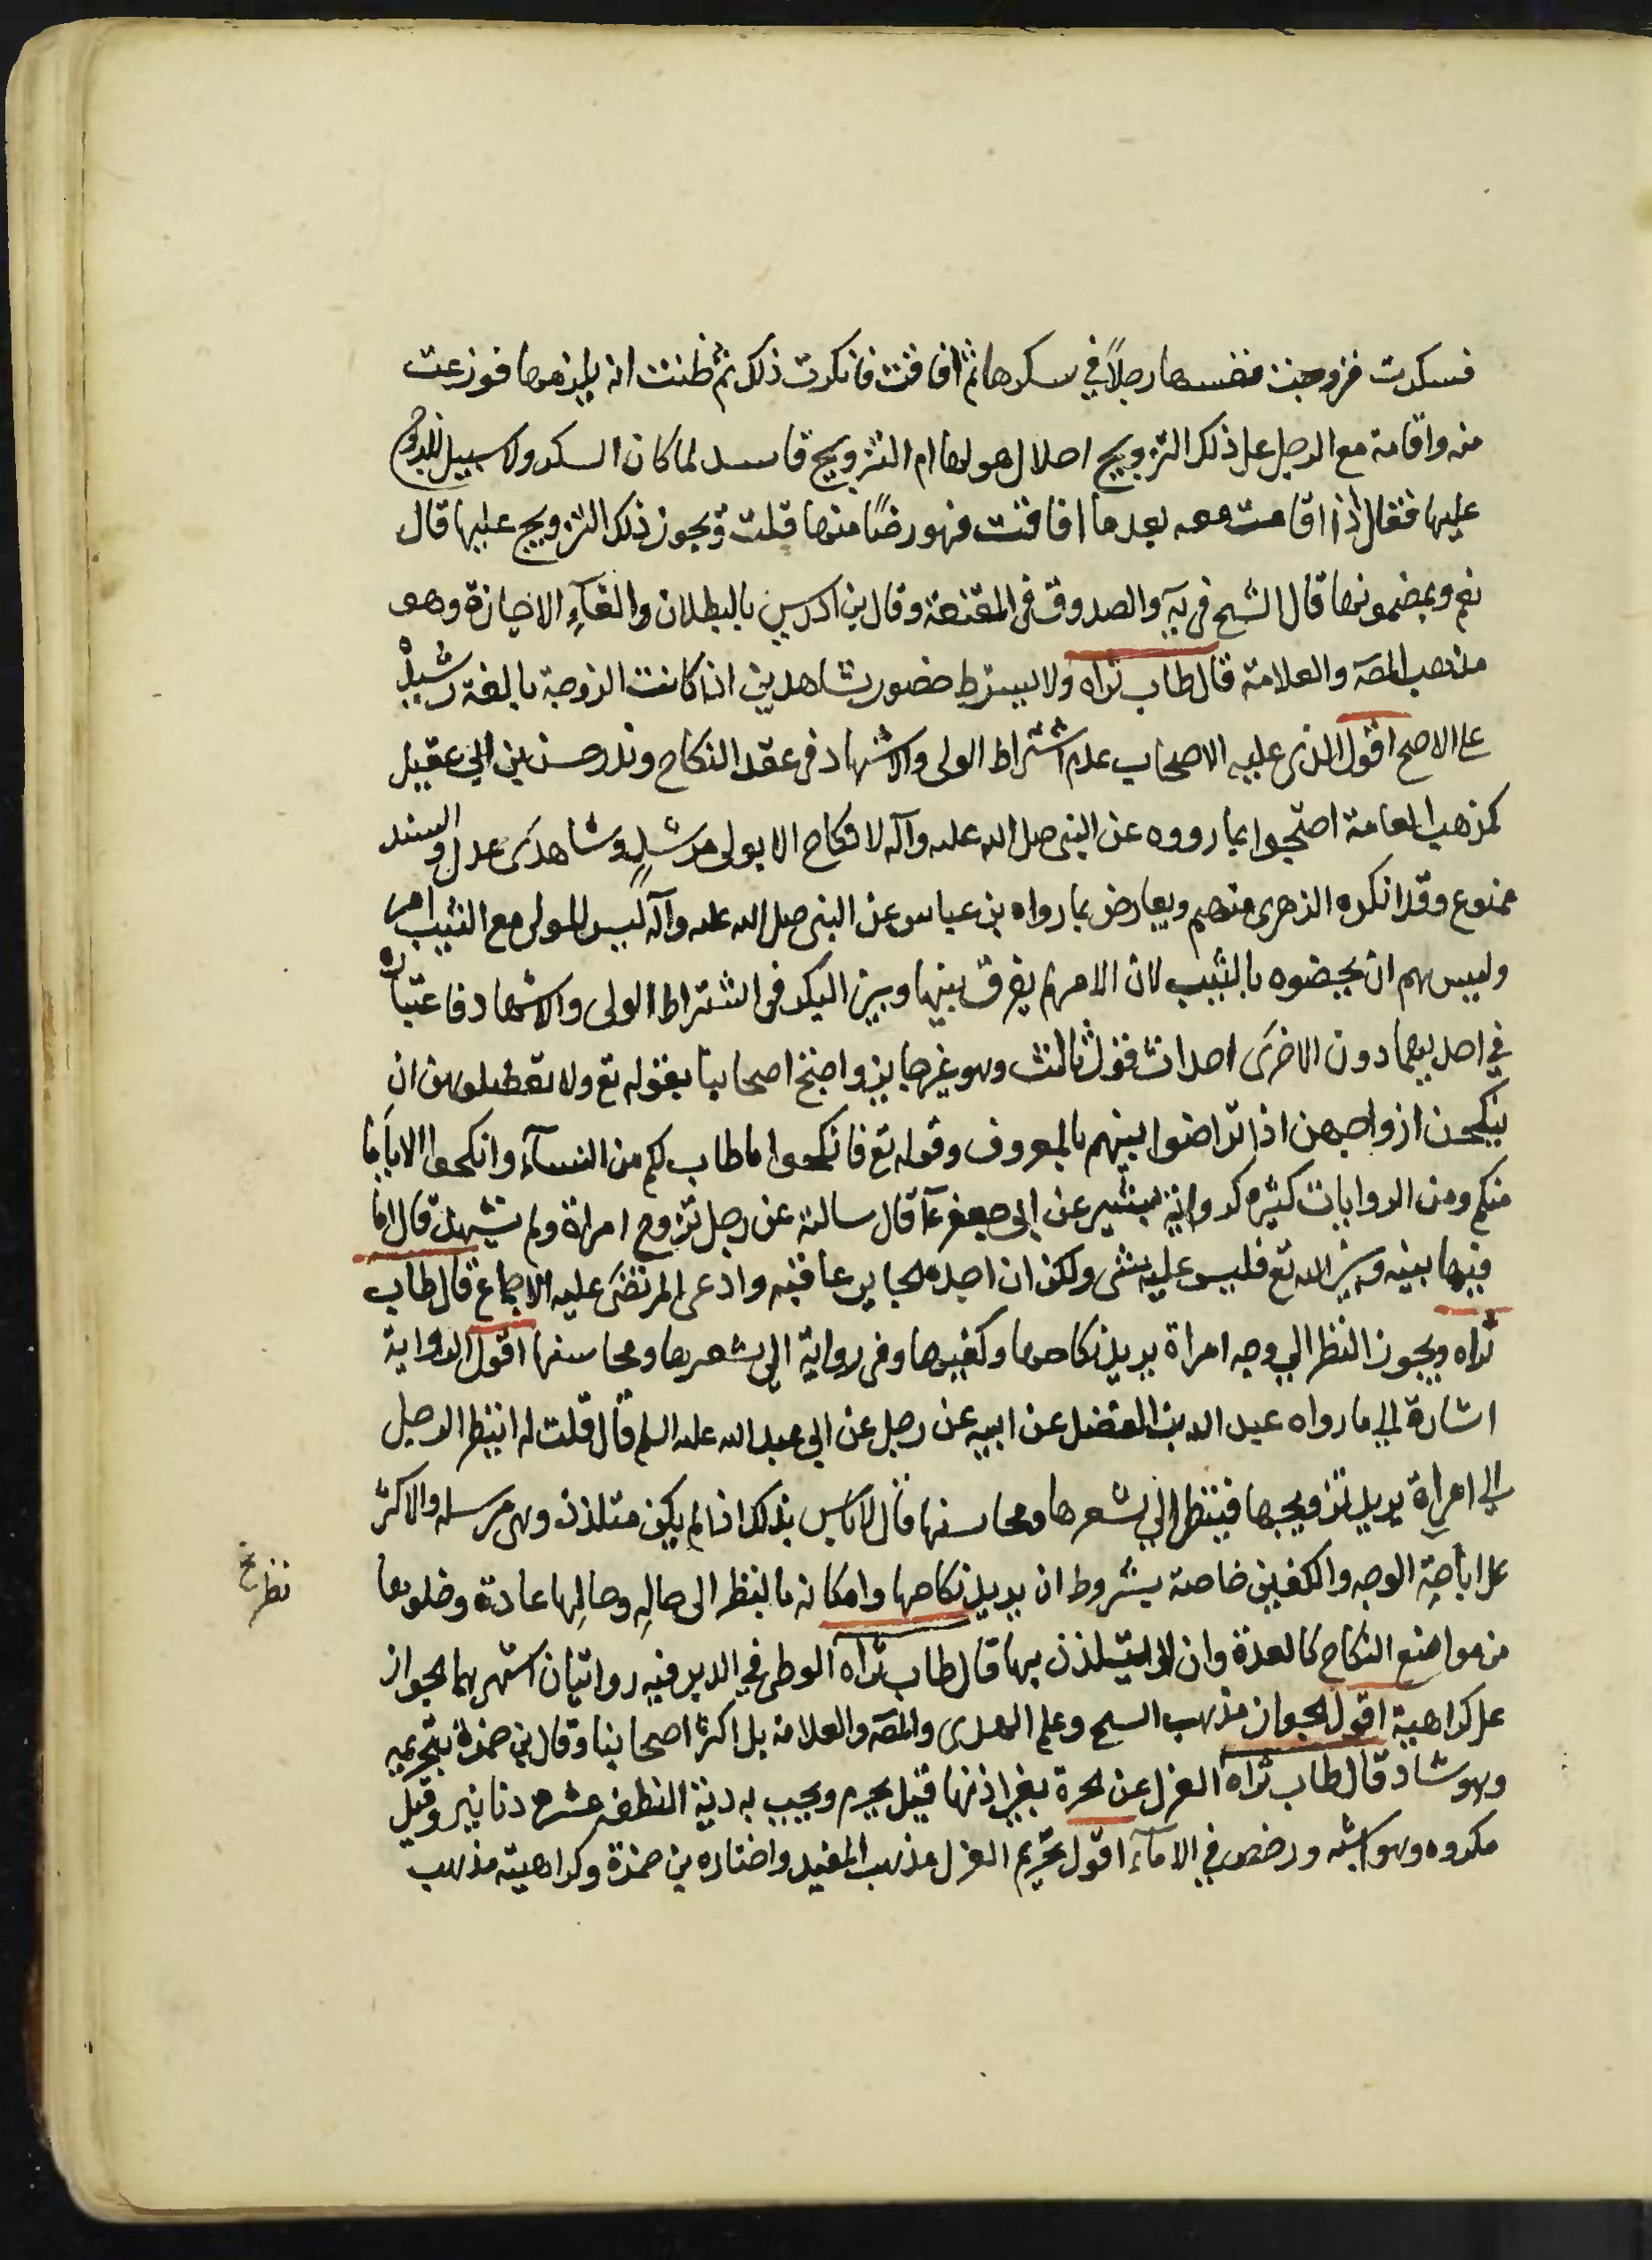 فسكرت فزوجت نفسها رجلاً في سكرها ثم افاقت فانكرت ذلك ثم ظنت انه يلزمها فوزعت
منه واقامة مع الرجل على ذلك التزويج احلال هو لها ام التزويج فاسد لما كان السكر ولا سبيل للزوج
عليها فقال اذا اقامت معه بعد ما افاقت فهو رضًا منها قلت ويجوز ذلك التزويج عليها قال
نعم وبمضمونها قال الشيخ في يه والصدوق في المقنعة وقال بن ادريس بالبطلان والغآءِ الاجازة وهو
مذهب المصَ والعلامة قال طاب ثراه ولا يشترط حضور شاهدين اذا كانت الزوجة بالغة رشيدة
على الاصح اقول الذى عليه الاصحاب عدم اشتراط الولى والاشهاد في عقد النكاح وندر حسن بن ابي عقيل
كمذهب العامة احتجوا بما رووه عن النبى صلى الله عليه وآله لا نكاح الا بولى مرشدٍ وشاهدَى عدل والسند
ممنوع وقد انكره الزهرى منهم ويعارض بما رواه بن عباس عن النبى صلى الله عليه وآله ليس للولى مع الثيب امر
وليس لهم ان يخصوه بالثيب لان الامر لم يفرق بينها وبين البكر في اشتراط الولى والاشهاد فاعتباره
في احديهما دون الاخرى احداث قول ثالث وهو غير جايز واحتج اصحابنا بقوله تع ولا تعضلوهن ان
ينكحن ازواجهن اذا تراضوا بينهم بالمعروف وقوله تع فانكحوا ما طاب لكم من النسآء وانكحوا الايامَا
منكم ومن الروايات كثيره كرواية ميثير عن ابى جعفر عَ قال سالته عن رجل تزوج امراة ولم يشهد قال امّا
فيما بينه وبين الله تع فليس عليه شى ولكن ان اخذه جاير عاقبه وادعى المرتضى عليه الاجماع قال طاب
ثراه ويجوز النظر الى وجه امراة يريد نكاحها وكفيها وفى رواية الى شعرها ومحاسنها اقول الرواية
اشارة الى ما رواه عبد الله بن الفضل عن ابيه عن رجل عن ابى عبد الله عليه السلم قال قلت له اينظر الرجل
الى امراة يريد تزويجها فينظر الى شعرها ومحاسنها قال لا باس بذلك اذا لم يكن متلذذ وهى مرسله والاكثر
على اباحة الوجه والكفين خاصة بشروط ان يريد نكاحها وامكانه بالنظر الى حالِه وحالِها عادة وخلوها
نظر خ
من موانع النكاح كالعدة وان لا يتلذذ بها قال طاب ثراه الوطى في الدبر فيه روايتان اشهرهما الجواز
على كراهية اقول الجواز مذهب الشيخ وعلم الهدى والمصَ والعلامة بل اكثر اصحابنا وقال بن حمزة بتحريمه
وهو شاذ قال طاب ثراه العزل عن الحرة بغير اذنها قيل يحرم ويجب به دية النطفه عشره دنانير وقيل
مكروه وهو اشبه ورخص في الامآء اقول تحريم العزل مذهب المفيد واختاره بن حمزة وكراهيته مذهب